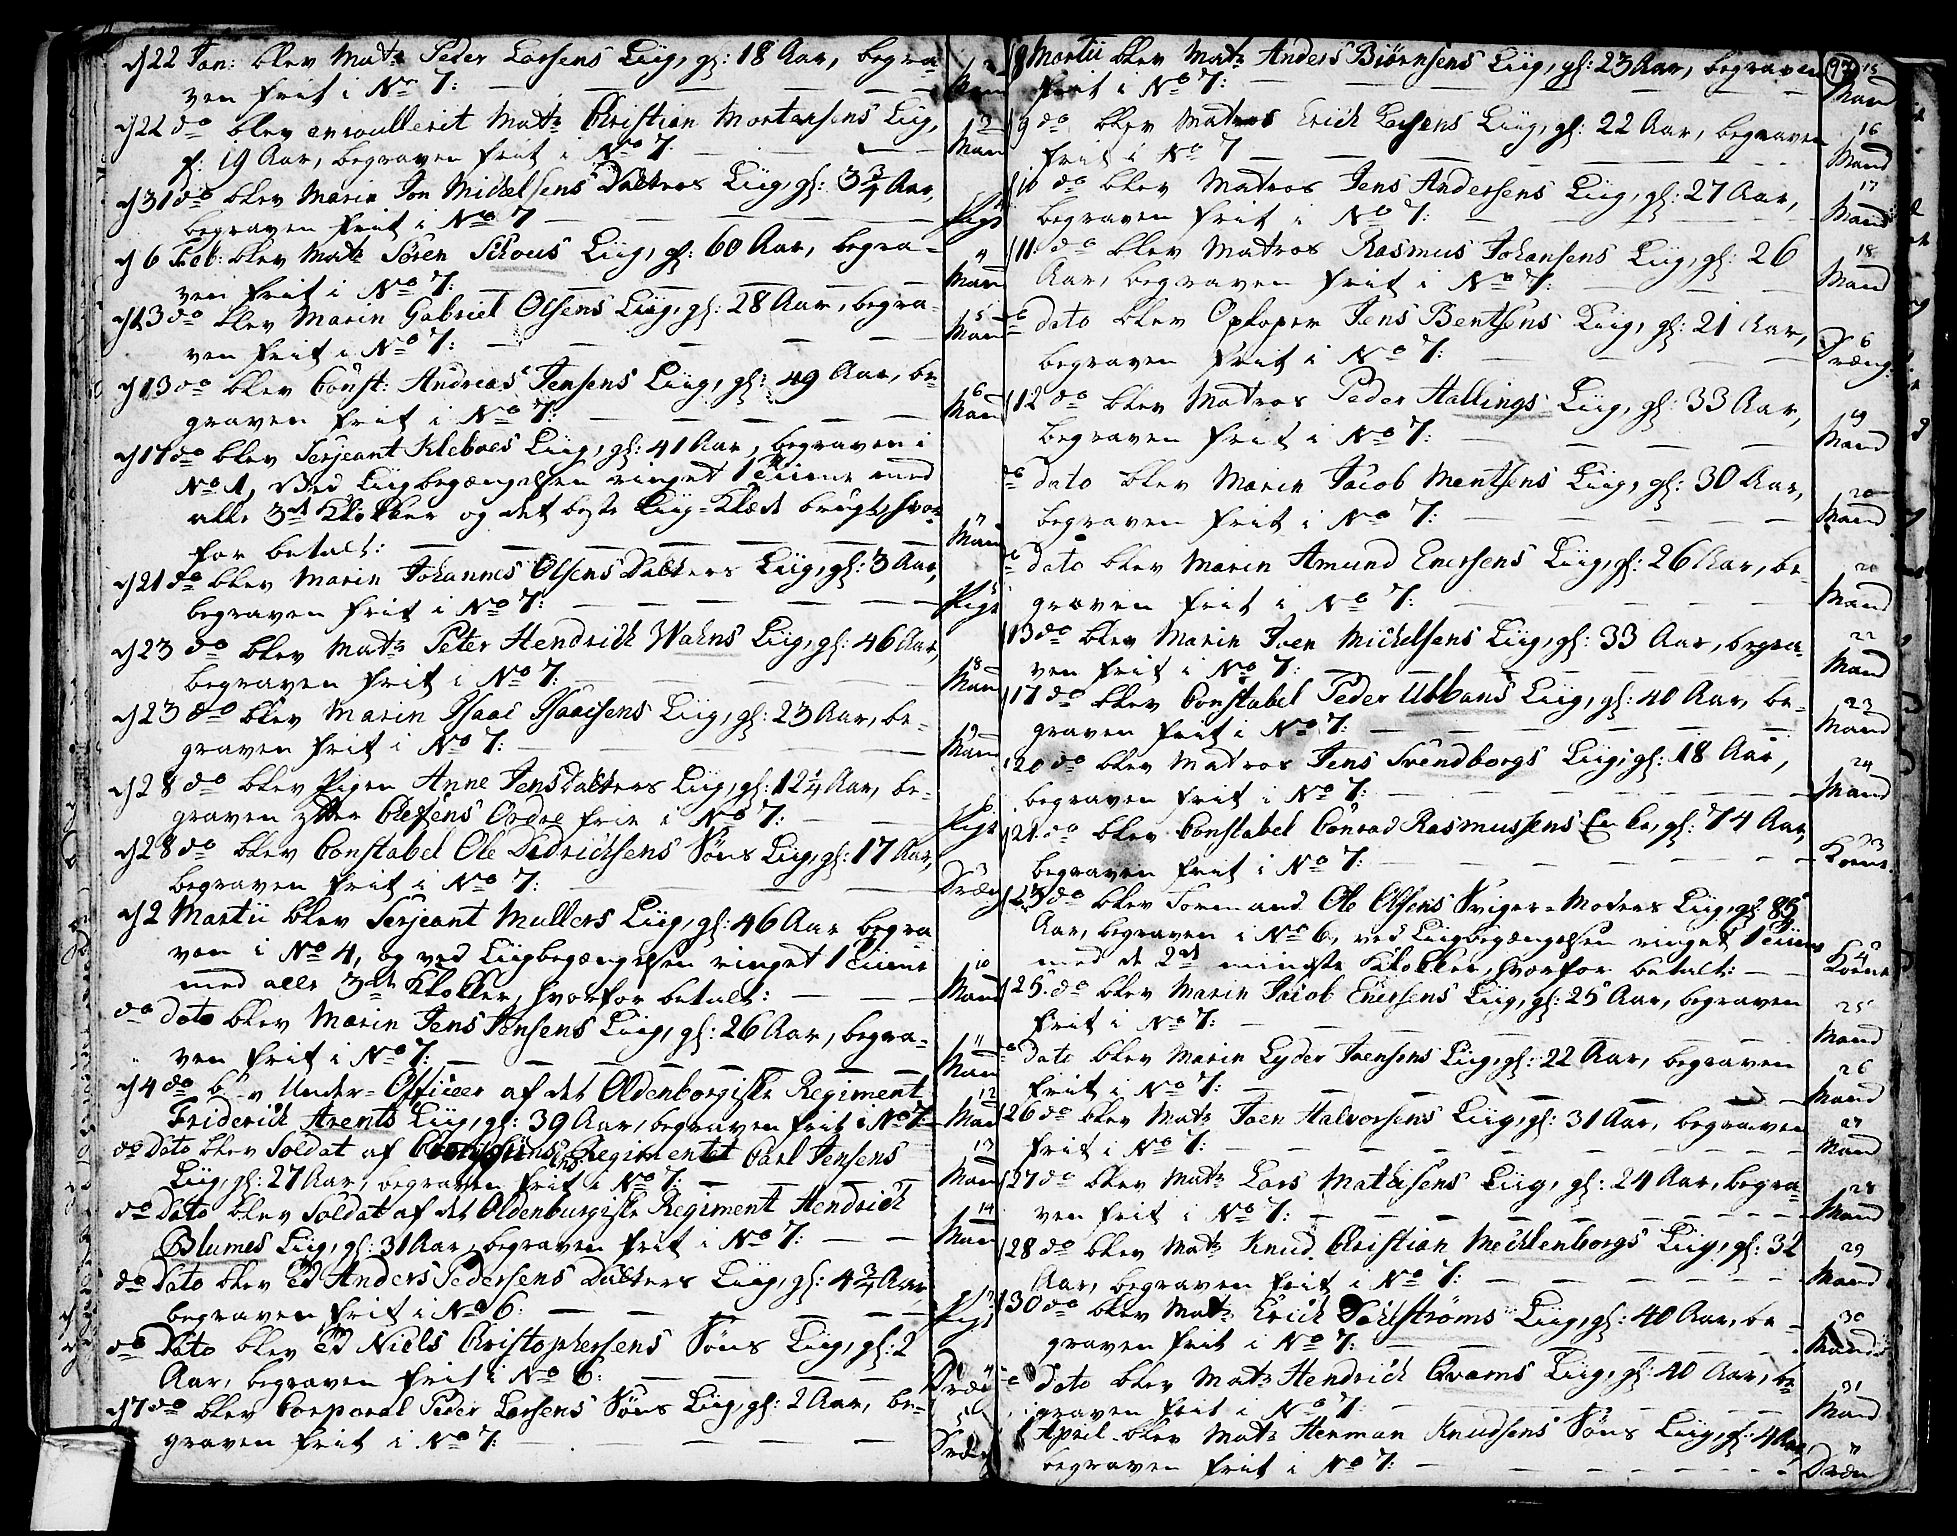 d 22 Jan: blev Matr Peder Larsens Liig, gl: 18 Aar, begra-
ven frit i No 7: Man
d 22 do blev enroullerit Matr Christian Mortensens Liig, 2
gl: 19 Aar, begraven frit i No 7. Man
d 31 do blev Marin Jon Michelsens Datters Liig, gl: 3 3/4 Aar,
begraven frit i No 7 Pige
d 6 Feb: blev Matr Sören Schous Liig, gl: 60 Aar, begra- 4
ven frit i No 7: Man
d 13 do blev Marin Gabriel Olsens Liig, gl: 28 Aar, begra- 5
ven frit i No 7: Man
d 13 do blev Const: Andreas Jensens Liig, gl: 49 Aar, be- 6
graven frit i No 7: Man
d 17 do blev Serjeant Kleboes Liig, gl: 41 Aar, begraven i
No 1, Ved Liigbegængelsen ringet 1 Time med
alle 3de Klokker og det beste Liig-Klæde brugt, hvor- 7
for betalt: Man
d 21 do blev Marin Johannes Olsens Datters Liig, gl: 3 Aar,
begraven frit i No 7: Pige
d 23 do blev Matr Peter Hendrich Wahns Liig, gl: 46 Aar, 8
begraven frit i No 7: Man
d 23 do blev Marin Isaac Isaacsens Liig, gl: 23 Aar, be- 9
graven frit i No 7: Man
d 28 do blev Pigen Anne Jensdatters Liig, gl: 12 1/4 Aar, be-
graven efter Chefens Ordre frie i No 7: Pige
d 28 do blev Constabel Ole Didrichsens Søns Liig, gl: 17 Aar,
begraven frit i No 7: Dræn
d 2 Martii blev Serjeant Mullers Liig, gl: 46 Aar begra-
ven i No 4, og ved Liigbegængelsen ringet 1 Time 10
med alle 3de Klokker, hvorfor betalt: Mand
do dato blev Marin Jens Jensens Liig, gl: 26 Aar, begra- 11
ven frit i No 7: Man
d 4 do blev Under-Officeer af det Oldenborgiske Regiment 12
Friderich Arents Liig, gl: 39 Aar, begraven frit i No 7 Man
do Dato blev Soldat af Regimentet Carl Jensens 13
Liig, gl: 27 Aar, begraven frit i No 7: Man
do Dato blev Soldat af det Oldenburgiske Regiment Hendrich 14
Blumes Liig, gl: 31 Aar, begraven frit i No 7: Man
do Dato blev Anders Pedersens Datters Liig, gl: 4 3/4 Aar,
begraven frit i No 6: Pige
do Dato blev Niels Christophersens Søns Liig, gl: 2
Aar, begraven frit i No 6: Dræn
d 7 do blev Corporal Peder Larsens Søns Liig, gl: 2 Aar, be-
graven frit i No 7: Dræn
8 Martii blev Matr Anders Biörnsens Liig, gl: 23 Aar, begraven 15
frit i No 7: Mand
9 do blev Matros Erich Larsens Liig, gl: 22 Aar, begraven 16
frit i No 7 Mand
10 do blev Matros Jens Andersens Liig, gl: 27 Aar, 17
begraven frit i No 7: Mand
11 do blev Matros Rasmus Johansens Liig, gl: 26 18
Aar, begraven frit i No 7: Mand
do dato blev Oploper Jens Bentsens Liig, gl: 21 Aar, 6
begraven frit i No 7: Dræng
12 do blev Matros Peder Hallings Liig, gl: 33 Aar, 19
begraven frit i No 7: Mand
do dato blev Marin Jacob Mentsens Liig, gl: 30 Aar, 20
begraven frit i No 7: Mand
do dato blev Marin Amund Enersens Liig, gl: 26 Aar, be- 21
graven frit i No 7: Mand
13 do blev Marin Joen Michelsens Liig, gl: 33 Aar, begra- 22
ven frit i No 7: Mand
17 do blev Constabel Peder Ubbans Liig, gl: 40 Aar, be- 23
graven frit i No 7: Mand
20 do blev Matros Jens Svendborgs Liig, gl: 18 Aar, 24
begraven frit i No 7: Mand
21 do blev Constabel Conrad Rasmussens Enke, gl: 74 Aar,
begraven frit i No 7: Kone
23 do blev Tømmermand Ole Olsens Sviger-Moders Liig, gl: 85
Aar, begraven i No 6, ved Liigbegængelsen ringet 1 Time
med de 2de mindste Klokker, hvorfor betalt: Kone
25 do blev Marin Jacob Enersens Liig, gl: 25 Aar, begraven 25
frit i No 7: Mand
do dato blev Marin Lyder Joensens Liig, gl: 22 Aar, begraven 26
frit i No 7: Mand
26 do blev Matr Joen Halvorsens Liig, gl: 31 Aar, begraven 27
frit i No 7: Mand
27 do blev Matr Lars Mathisens Liig, gl: 24 Aar, begra- 28
ven frit i No 7: Mand
28 do blev Matr Knud Christian Mechlenborgs Liig, gl: 32 29
Aar, begraven frit i No 7: Mand
30 do blev Matr Erich Liig, gl: 40 Aar, be- 30
graven frit i No 7: Mand
do dato blev Matr Hendrich Qvams Liig, gl: 40 Aar, be- 31
graven frit i No 7: Mand
1 April blev Matr Herman Knudsens Søns Liig, gl: 4 Aar,
begraven frit i No 7: Dræn